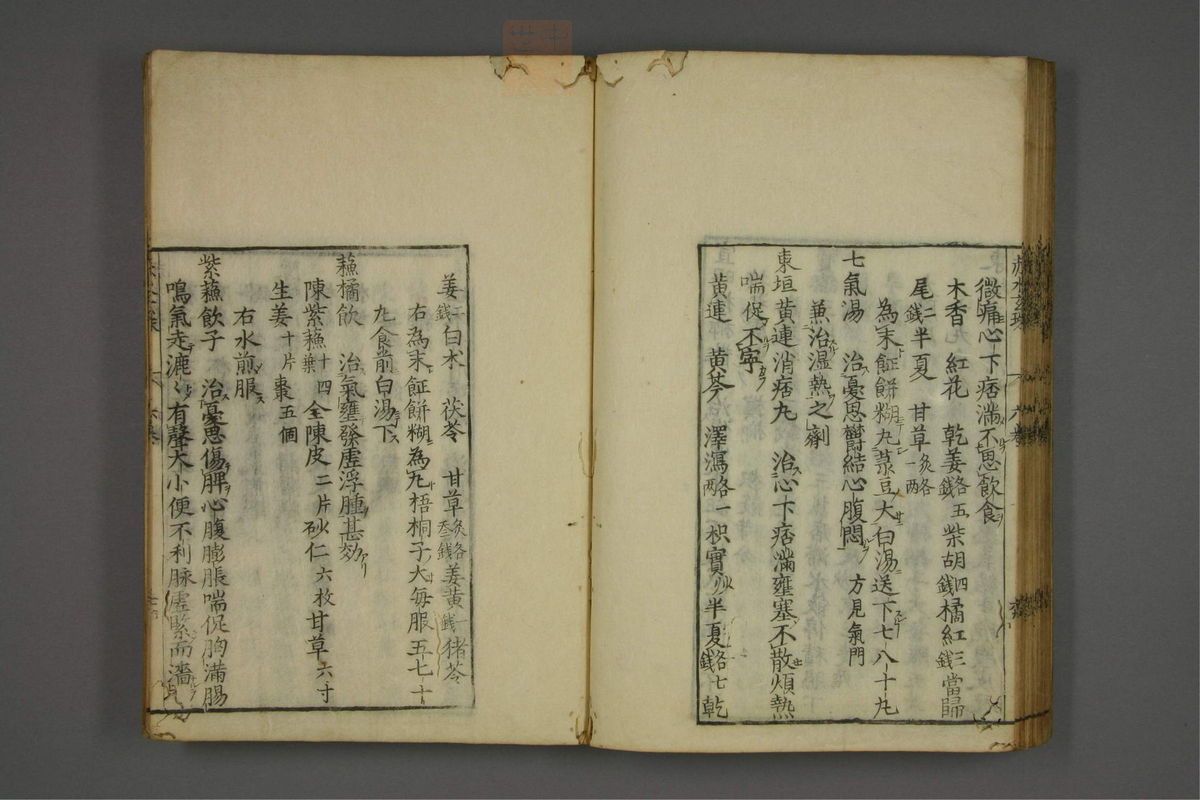 微痛心下痞滿不思飲食
木香 紅花 乾姜各五錢 柴胡四錢 橘紅三錢 當歸
尾二錢 半夏 甘草炙各一兩
為末飪餅糊丸菉豆大白湯送下七八十丸
七氣湯 治憂思欝結心腹悶 方見氣門
兼治湿熱之劑
東垣黃連消痞丸 治心下痞滿壅塞不散煩熱
喘促不寜
黃連 黃芩 澤瀉各一兩 枳實炒 半夏各七錢 乾
姜二錢 白术 茯苓 甘草炙各三錢 姜黃一錢 猪苓
右為末飪餅糊為丸梧桐子大每服五七十
丸食前白湯下
蘓橘飲 治氣壅發虛浮腫甚効
陳紫蘓十四葉 全陳皮二片 砂仁六枚 甘草六寸
生姜十片 棗五個
右水煎服
紫蘓飲子 治憂思傷脾心腹膨脹喘促胸滿腸
鳴氣走漉〻有聲大小便不利脉虛緊而濇